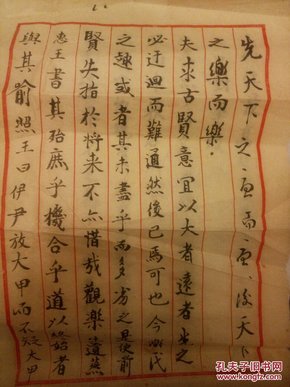 先天下之憂而憂後天下
之樂而樂
夫求古賢意宜以大者遠者先之
必迂迴而難通然後已焉可也今樂氏
之趣或者其未盡乎而多劣之是使前
賢失指於將来不亦惜哉觀樂遺燕
惠王書其殆庶乎機合乎道以終始者
與其俞照王曰伊尹放大甲而不疑大甲
孔夫子旧书网